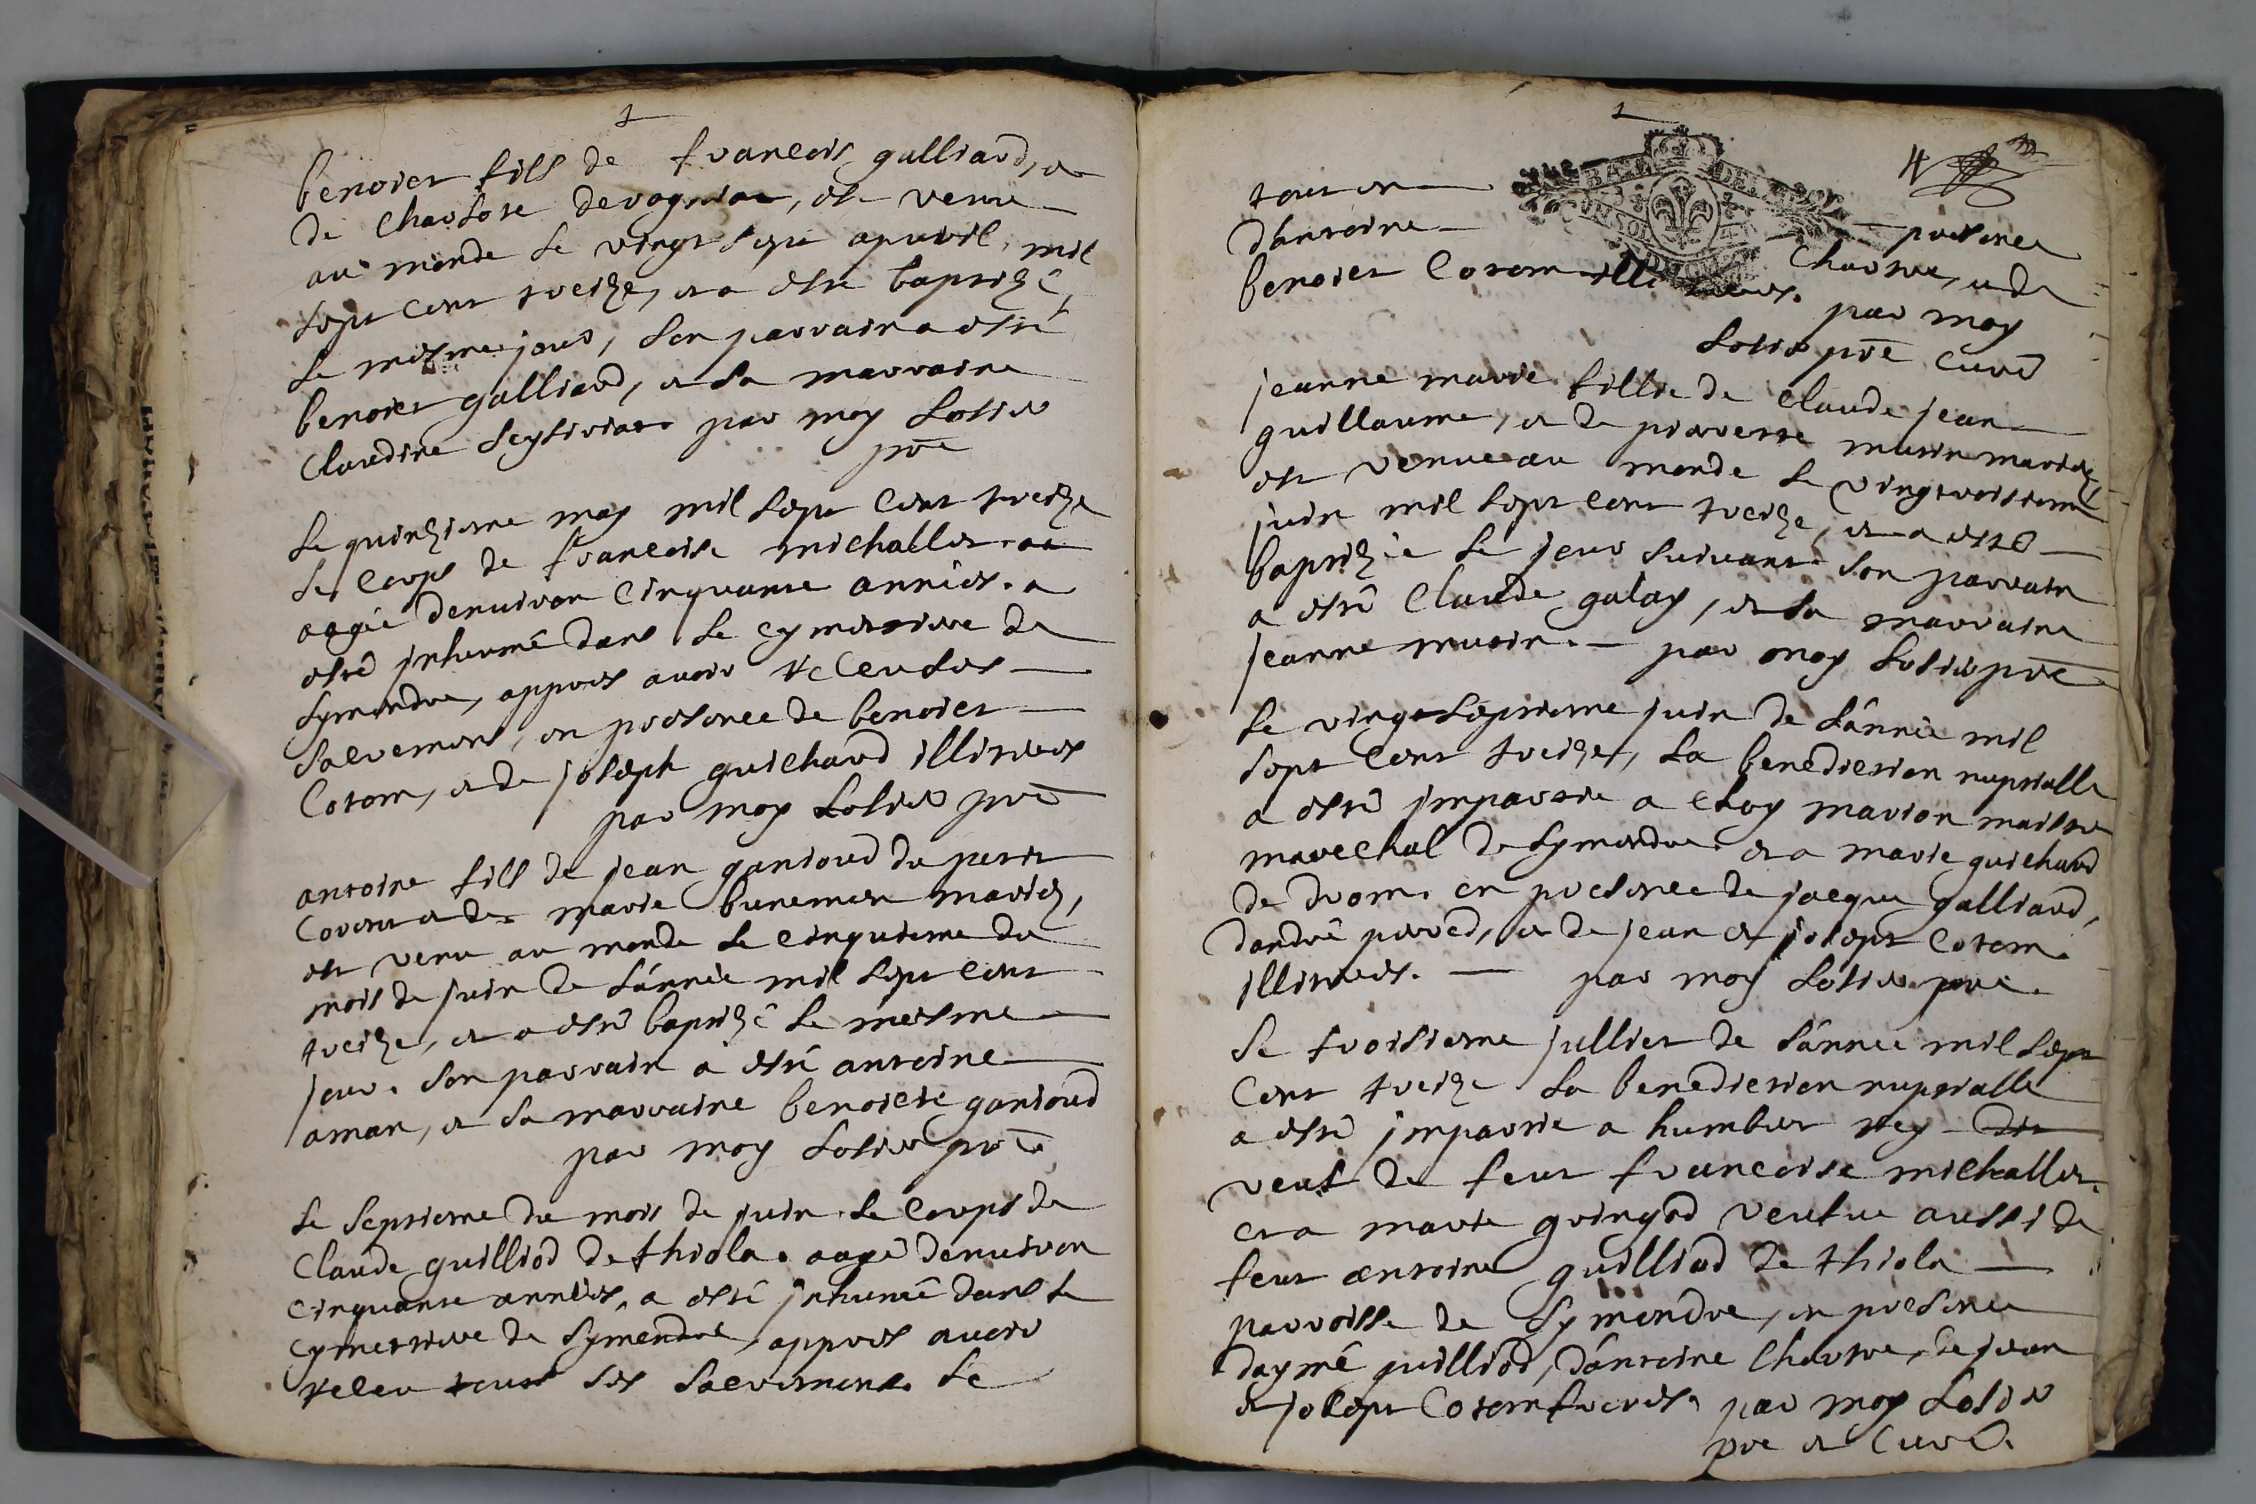 benoict fills de francois galliard, et
de charlote devagniat, est venu
au monde le vingt sept apuvril, mil
sept cent treize, et a esté baptizé
le mesme jour, son parrain a esté
benoict galliard, et sa marraine
Claudine par moy Solier
pre
Le quinzieme may mil sept cent treize
le corps de francoise michallet
aagée denuiron cinquante années. a
esté jnhumé dans le cymettiere de
symandre, appres auoir receu ses
sacremens, en presence de benoict
Cotom, et de joseph guichard illiteres
par moy Solier pre
antoine fills de jean gantoud du petit
Covent et de marie buremen mariez,
est venu au monde le cinquieme du
mois de juin de l'année mil sept cent
treize, et a esté baptizé le mesme
jour. son parrain a esté antoine
aman, et sa marraine benoicte gantoud
par moy Solier pre
Le septieme du mois de juin le corps de
Claude guilliod de thiola. aagé denuiron
cinquante années, a esté jnhumé dans le
cymettiere de symandre, appres auoir
receu tous ses sacremens. le
tout en presence
d'antoine Chartre, et de
benoict Cotom illi teres. par moy
Solier pre curé
jeanne marie fillie de Claude jean
guillaume, et de pierrette musin mariez,
est venue au monde le vingtroisieme
juin mil sept cent treize, et a esté
baptizée le jour suivant son parrain
a esté Claude galay, et sa marraine
jeanne musin. par moy Solier pre
Le vingt septieme juin de l'année mil
sept cent treize, la benediction nuptialle
a esté jmpartie a eloy marion maistre
marechal de symandre. et a marie guichard
de drom. en presence de jacque galliard,
dandré perrod, et de jean et josept Cotom
illiteres. par moy Solier pre.
Le troisieme julliet de l'année mil sept
cent treize la benediction nuptialle
a esté jmpartie a humbert rey
veuf de feue francoise michallet.
et a marie gringod veufue aussi de
feut antoine guilliod de thiola
parroisse de symandre, en presence
daymé guilliod, d'antoine Chartre, de jean
et josept Cotom. par moy Solier
pre et curé.